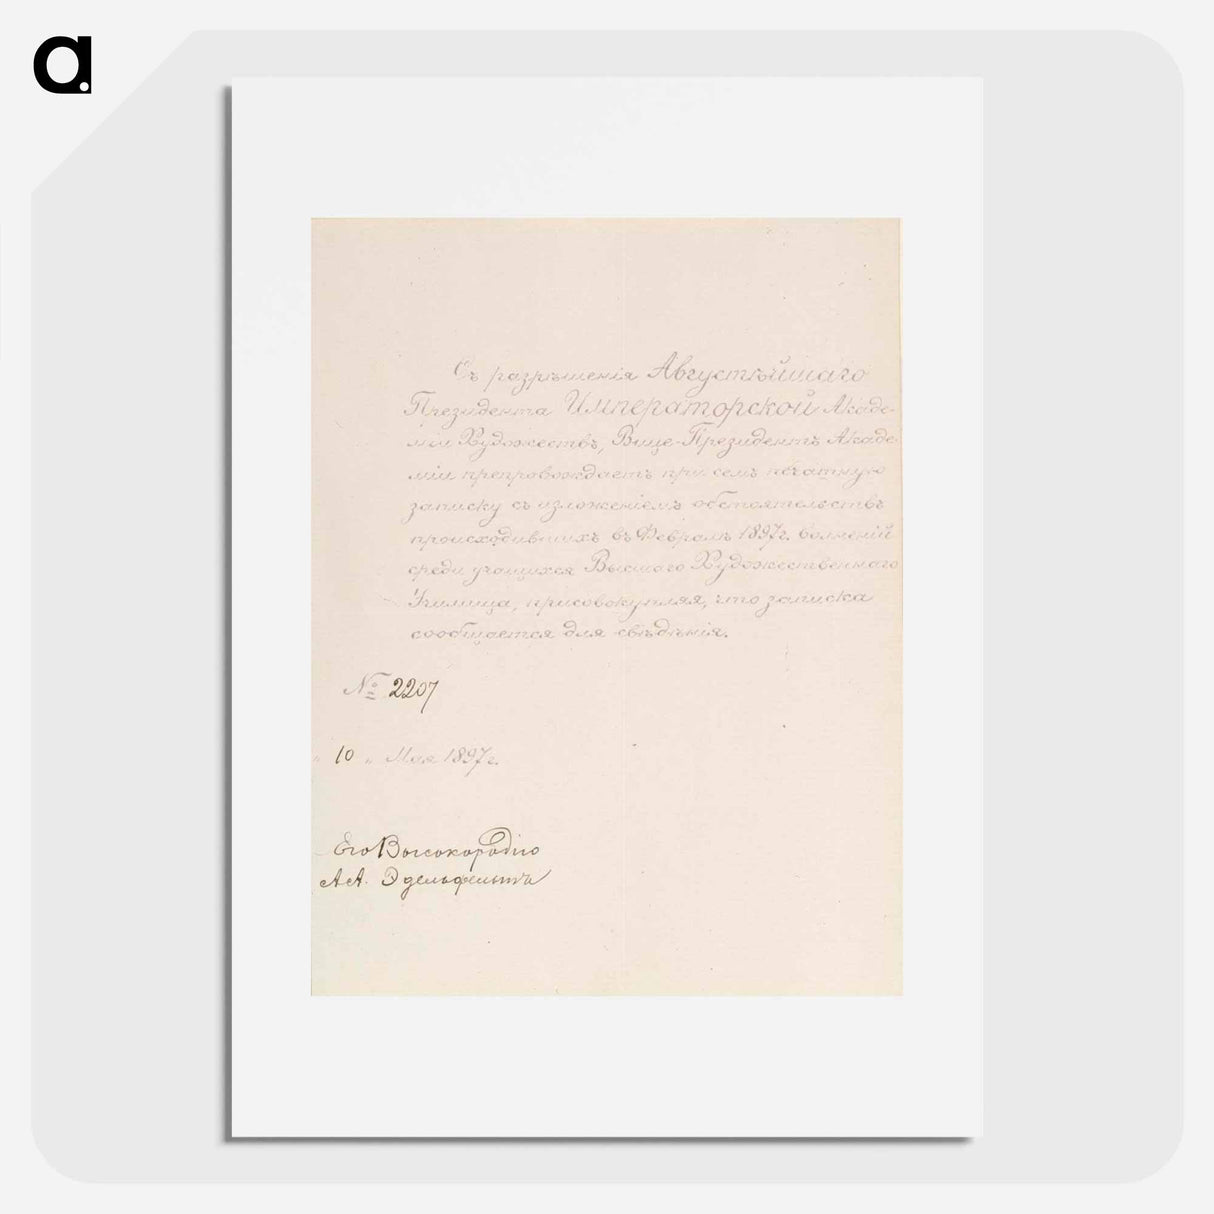 a.
Съ разрѣшенія Августѣйшаго
Президента Императорской Акаде-
міи Художествъ, Вице-Президентъ Акаде-
міи препровождаетъ при семъ печатную
записку съ изложеніемъ обстоятельствъ
происходившихъ въ Февралѣ 1897г. волненій
среди учащихся Высшаго Художественнаго
Училища, присовокупляя, что записка
сообщается для свѣдѣнія.
№ 2207
" 10 " Мая 1897г.
Его Высокородію
АА. Эдельфельтъ